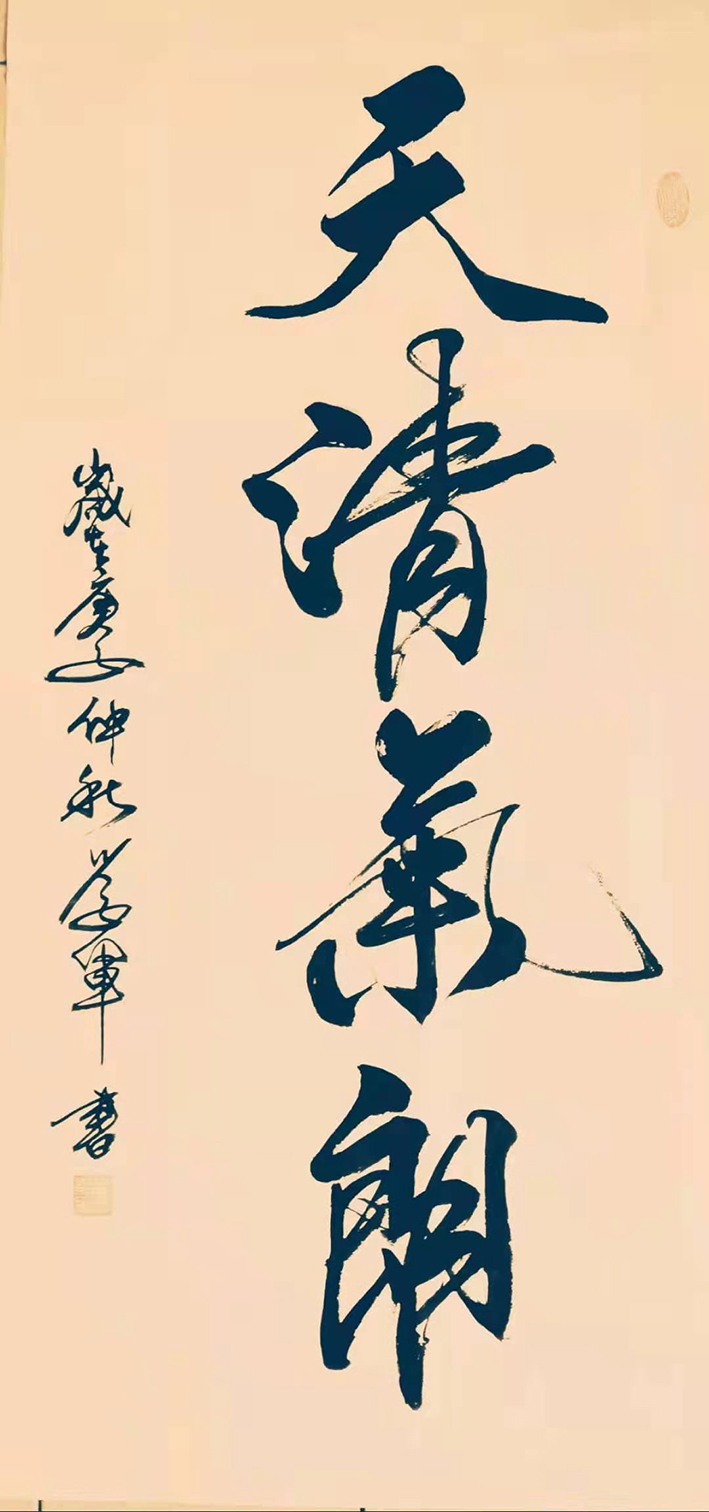 天清氣朗
歲在庚子仲秋學軍書